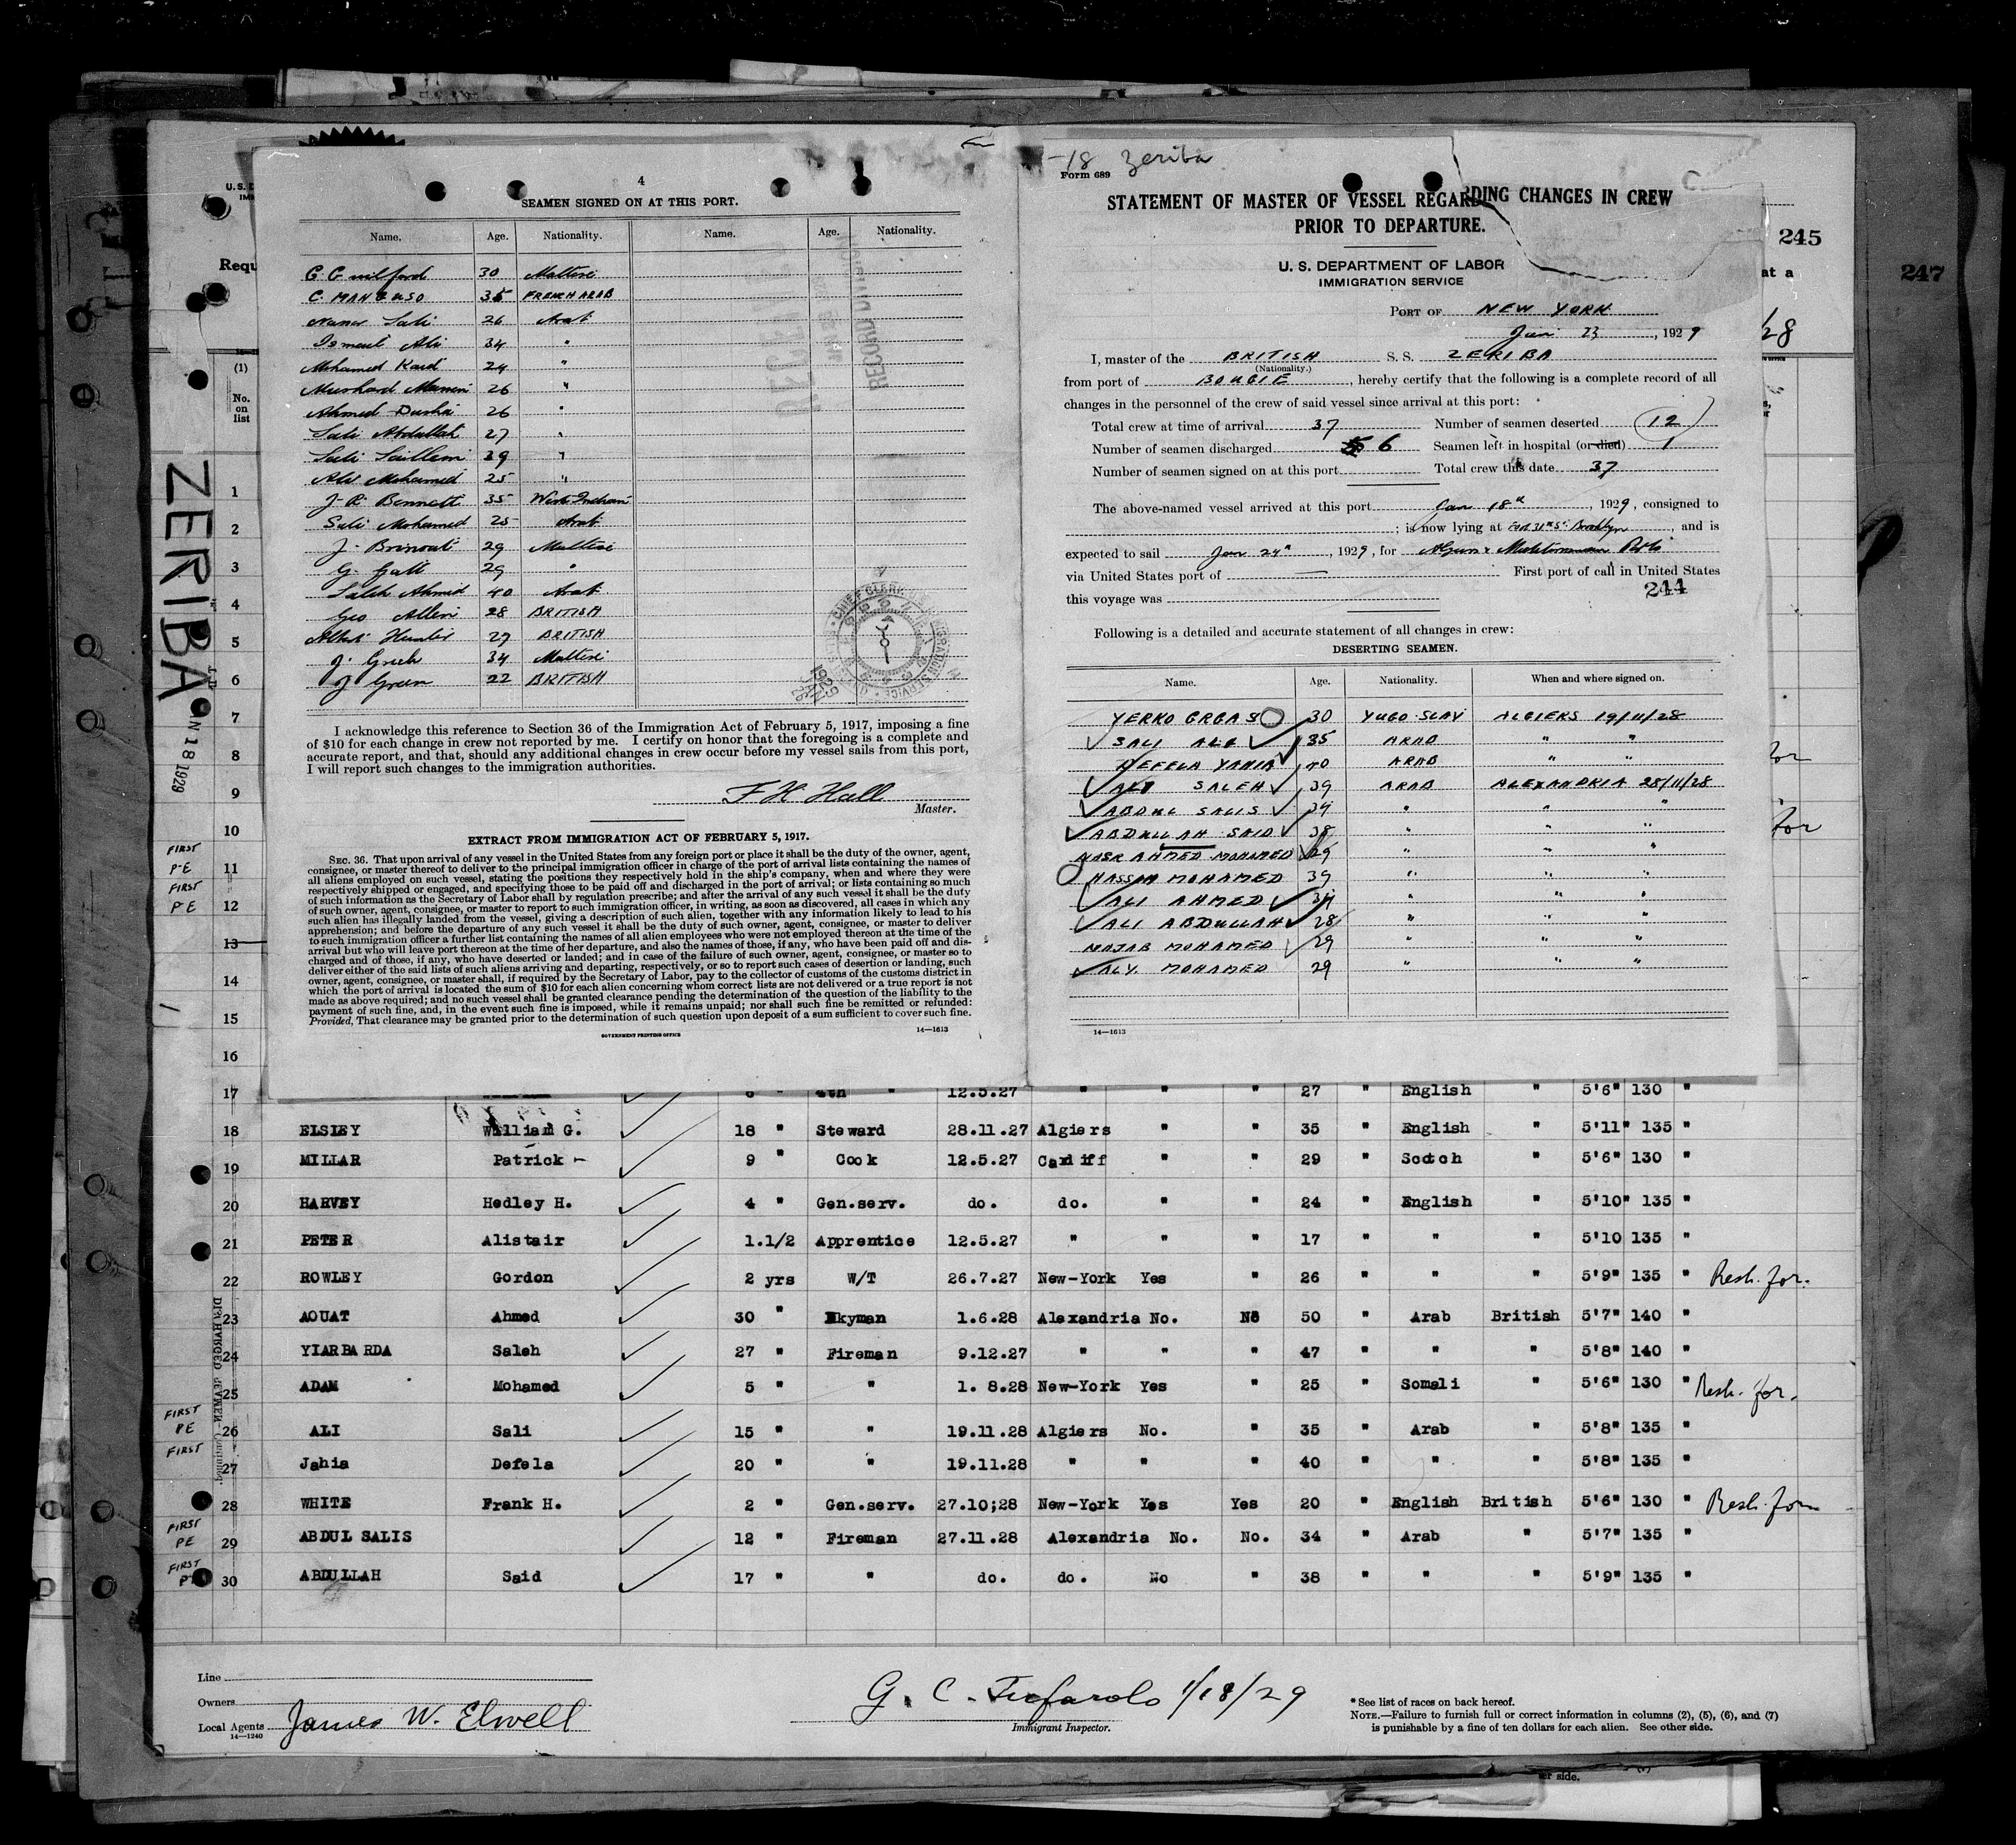 4
SEAMEN SIGNED ON AT THIS PORT.
Name. Age. Nationality. Name. Age. Nationality.
30 Maltese
C. MANGUSO 35 FRENCH ARAB
Sali 26 Arab
Ismail Ali 34 "
Mohamed Kaid 24 "
26 "
Ahmed 26 "
Sali Abdullah 27 "
Sali 39 "
Ali Mohamed 25 "
J. R. Bennett 35 West Indian
Sali Mohamed 25 Arab
J. 29 Maltese
G. Gatt 29 "
Saleh Ahmid 40 Arab
Geo Allen 28 BRITISH
Albert Hunter 27 BRITISH
J. Grech 34 Maltese
J Green 22 BRITISH
I acknowledge this reference to Section 36 of the Immigration Act of February 5, 1917, imposing a fine
of $10 for each change in crew not reported by me. I certify on honor that the foregoing is a complete and
accurate report, and that, should any additional changes in crew occur before my vessel sails from this port,
I will report such changes to the immigration authorities.
F H Hall
Master.
EXTRACT FROM IMMIGRATION ACT OF FEBRUARY 5, 1917.
SEC. 36. That upon arrival of any vessel in the United States from any foreign port or place it shall be the duty of the owner, agent,
consignee, or master thereof to deliver to the principal immigration officer in charge of the port of arrival lists containing the names of
all aliens employed on such vessel, stating the positions they respectively hold in the ship's company, when and where they were
respectively shipped or engaged, and specifying those to be paid off and discharged in the port of arrival; or lists containing so much
of such information as the Secretary of Labor shall by regulation prescribe; and after the arrival of any such vessel it shall be the duty
of such owner, agent, consignee, or master to report to such immigration officer, in writing, as soon as discovered, all cases in which any
such alien has illegally landed from the vessel, giving a description of such alien, together with any information likely to lead to his
apprehension; and before the departure of any such vessel it shall be the duty of such owner, agent, consignee, or master to deliver
to such immigration officer a further list containing the names of all alien employees who were not employed thereon at the time of the
arrival but who will leave port thereon at the time of her departure, and also the names of those, if any, who have been paid off and dis-
charged and of those, if any, who have deserted or landed; and in case of the failure of such owner, agent, consignee, or master so to
deliver either of the said lists of such aliens arriving and departing, respectively, or so to report such cases of desertion or landing, such
owner, agent, consignee, or master shall, if required by the Secretary of Labor, pay to the collector of customs of the customs district in
which the port of arrival is located the sum of $10 for each alien concerning whom correct lists are not delivered or a true report is not
made as above required; and no such vessel shall be granted clearance pending the determination of the question of the liability to the
payment of such fine, and, in the event such fine is imposed, while it remains unpaid; nor shall such fine be remitted or refunded:
Provided, That clearance may be granted prior to the determination of such question upon deposit of a sum sufficient to cover such fine.
GOVERNMENT PRINTING OFFICE 14—1613
-18 Zeriba
Form 689
STATEMENT OF MASTER OF VESSEL REGARDING CHANGES IN CREW
PRIOR TO DEPARTURE.
U. S. DEPARTMENT OF LABOR
IMMIGRATION SERVICE
PORT OF NEW YORK
Jan 23, 1929
I, master of the BRITISH S. S. ZERIBA
(Nationality.)
from port of BOUGIE, hereby certify that the following is a complete record of all
changes in the personnel of the crew of said vessel since arrival at this port:
Total crew at time of arrival 37 Number of seamen deserted 12
Number of seamen discharged 6 Seamen left in hospital (or died) 1
Number of seamen signed on at this port Total crew this date 37
The above-named vessel arrived at this port Jan 18th, 1929, consigned to
; is now lying at 31st St. Brooklyn, and is
expected to sail Jan 24th, 1929, for Ports
via United States port of — First port of call in United States
this voyage was
244
Following is a detailed and accurate statement of all changes in crew:
DESERTING SEAMEN.
Name. Age. Nationality. When and where signed on.
YERKO GRGAS 30 YUGO SLAV ALGIERS 19/11/28
SALI ALI 35 ARAB " "
DEFELA YAHIA 40 ARAB " "
ALI SALEH 39 ARAB ALEXANDRIA 28/11/28
ABDUL SALIS 34 " " "
ABDULLAH SAID 38 " " "
NASR AHMED MOHAMED 29 " " "
HASSAN MOHAMED 39 " " "
ALI AHMED 34 " " "
ALI ABDULLAH 28 " " "
NAJAB MOHAMED 29 " " "
ALY. MOHAMED 29 " " "
14—1613
245
247
at a
/28
for
for
U. S. D
Requ
(1)
No.
on
list
ZERIBA
N 18 1929
1
2
3
4
5
6
7
8
9
10
FIRST
PE 11
FIRST
PE 12
13
14
15
16
17 4th " 12.5.27 " " " 27 " English " 5'6" 130 "
18 ELSLEY William G. 18 " Steward 28.11.27 Algiers " " 35 " English " 5'11" 135 "
19 MILLAR Patrick 9 " Cook 12.5.27 Cardiff " " 29 " Scotch " 5'6" 130 "
20 HARVEY Hedley H. 4 " Gen.serv. do. do. " " 24 " English " 5'10" 135 "
21 PETER Alistair 1.1/2 Apprentice 12.5.27 " " " 17 " " " 5'10 135 "
22 ROWLEY Gordon 2 yrs W/T 26.7.27 New-York Yes " 26 " " " 5'9" 135 " Resh. for.
23 AOUAT Ahmed 30 " Dkyman 1.6.28 Alexandria No. No 50 " Arab British 5'7" 140 "
24 YIARBARDA Saleh 27 " Fireman 9.12.27 " " " 47 " " " 5'8" 140 "
25 ADAM Mohamed 5 " " 1. 8.28 New-York Yes " 25 " Somali " 5'6" 130 " Resh. for.
FIRST
PE 26 ALI Sali 15 " " 19.11.28 Algiers No. " 35 " Arab " 5'8" 135 "
FIRST
27 Jahia Defela 20 " " 19.11.28 " " " 40 " " " 5'8" 135 "
28 WHITE Frank H. 2 " Gen.serv. 27.10;28 New-York Yes Yes 20 " English British 5'6" 130 " Resh. for
FIRST
PE 29 ABDUL SALIS 12 " Fireman 27.11.28 Alexandria No. No. 34 " Arab " 5'7" 135 "
FIRST
30 ABDULLAH Said 17 " " do. do. No " 38 " " " 5'9" 135 "
DISCHARGED SEAMEN—Continued.
Line
Owners
Local Agents James W. Elwell
14—1240
G. C. Tufarolo 1/18/29
Immigrant Inspector.
* See list of races on back hereof.
NOTE.—Failure to furnish full or correct information in columns (2), (5), (6), and (7)
is punishable by a fine of ten dollars for each alien. See other side.
er side.